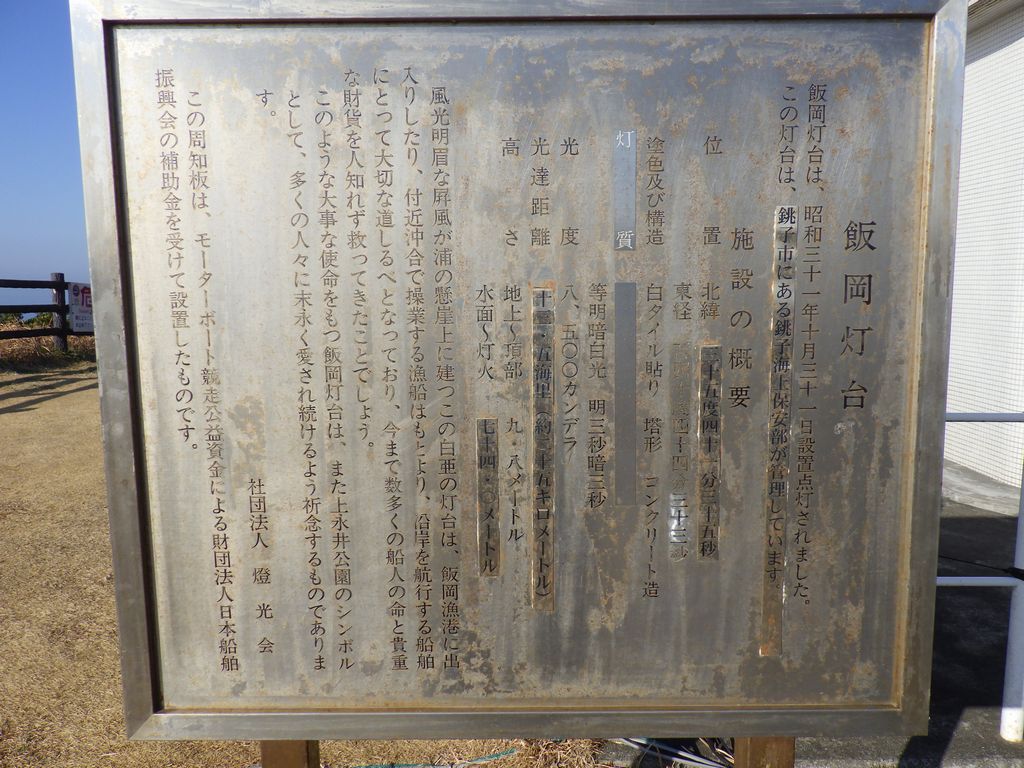 飯岡灯台
飯岡灯台は、昭和三十一年十月三十一日設置点灯されました。
この灯台は、銚子市にある銚子海上保安部が管理しています。
施設の概要
位置 北緯 三十五度四十一分三十五秒
東経 四十四分三十三秒
塗色及び構造 白タイル貼り 塔形 コンクリート造
灯質
等明暗白光 明三秒暗三秒
光度 八、五〇〇カンデラ
光達距離 十三・五海里（約二十五キロメートル）
高さ 地上〜頂部 九・八メートル
水面〜灯火 七十四・〇メートル
風光明眉な屛風が浦の懸崖上に建つこの白亜の灯台は、飯岡漁港に出
入りしたり、付近沖合で操業する漁船はもとより、沿岸を航行する船舶
にとって大切な道しるべとなっており、今まで数多くの船人の命と貴重
な財貨を人知れず救ってきたことでしょう。
このような大事な使命をもつ飯岡灯台は、また上永井公園のシンボル
として、多くの人々に末永く愛され続けるよう祈念するものでありま
す。
社団法人 燈光会
この周知板は、モーターボート競走公益資金による財団法人日本船舶
振興会の補助金を受けて設置したものです。
危